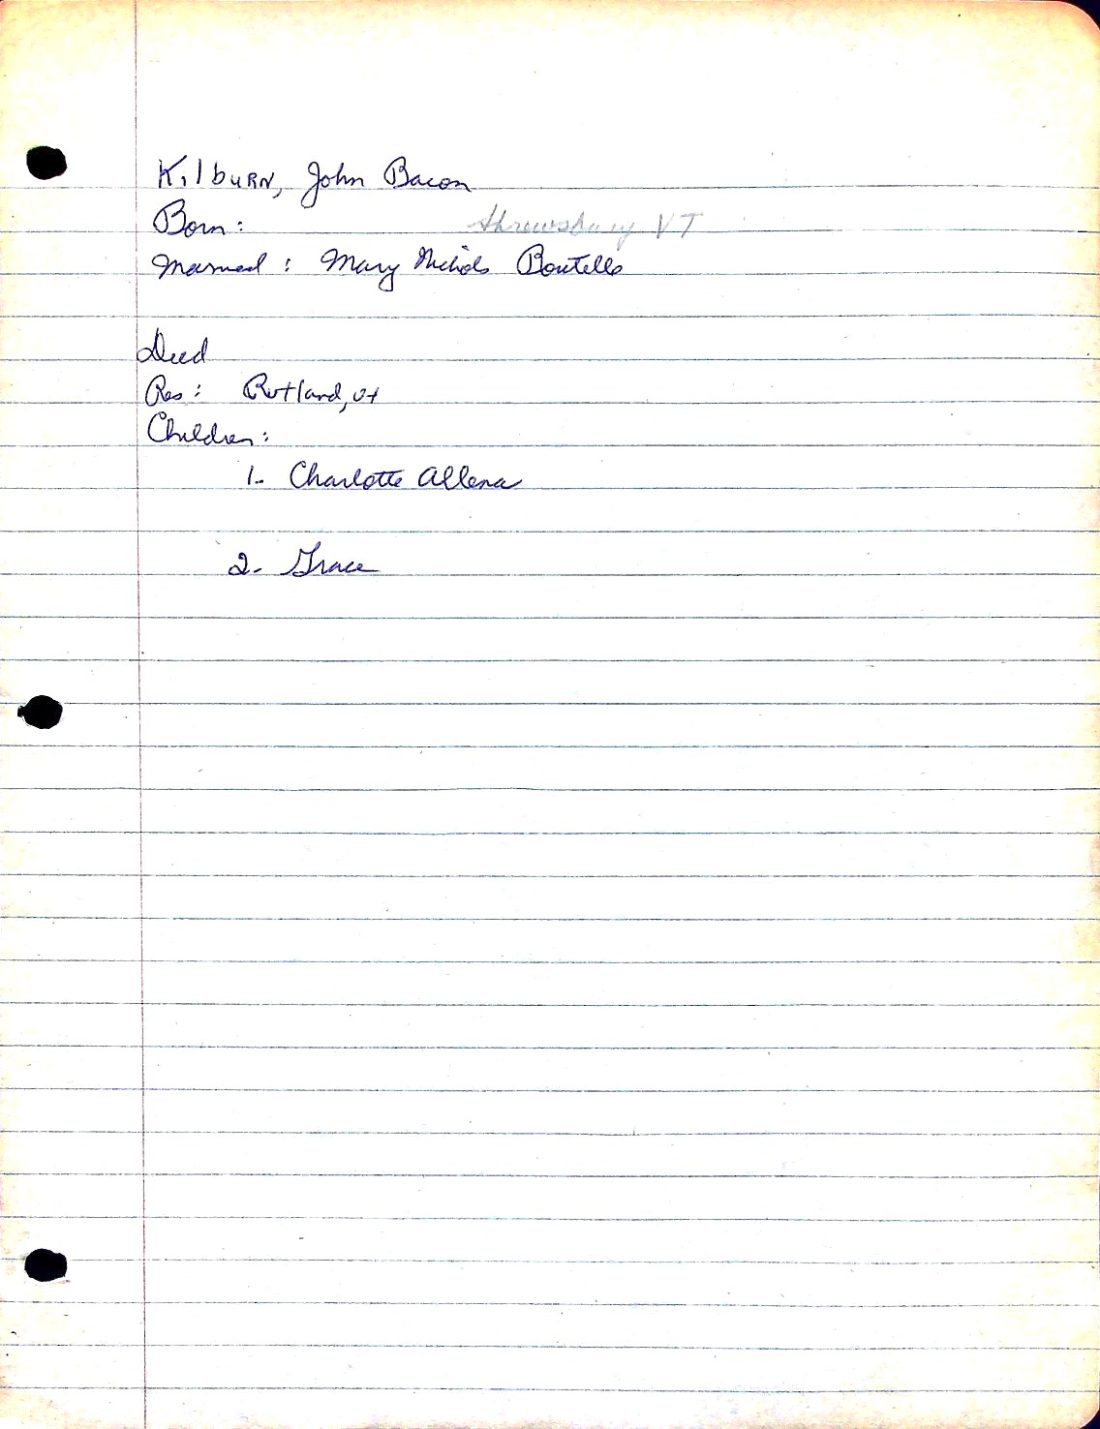 Kilburn, John Bacon
Born: Shrewsbury VT
Married: Mary Nichols Boutelle
Died
Res: Rutland, Vt
Children:
1- Charlotte Allena
2- Grace